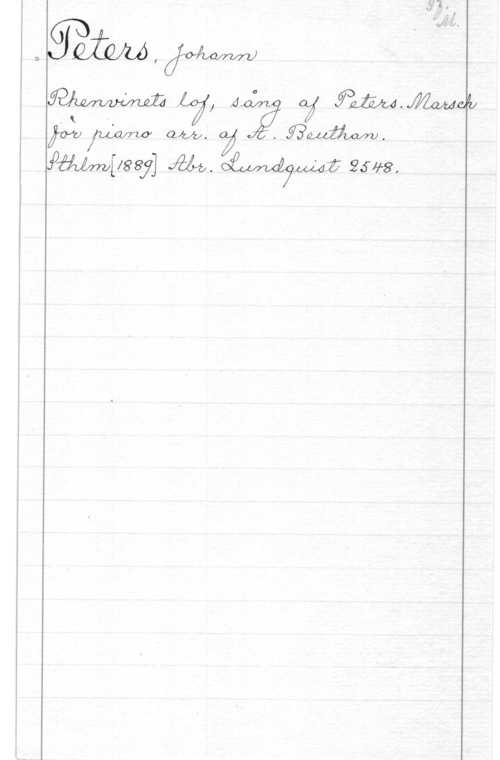 Peters, Johann
Rhenvinets lof, sång af Peters. Marsch
för piano arr. af A. Beuthan.
Sthlm [1889] Abr. Lundquist 2548.